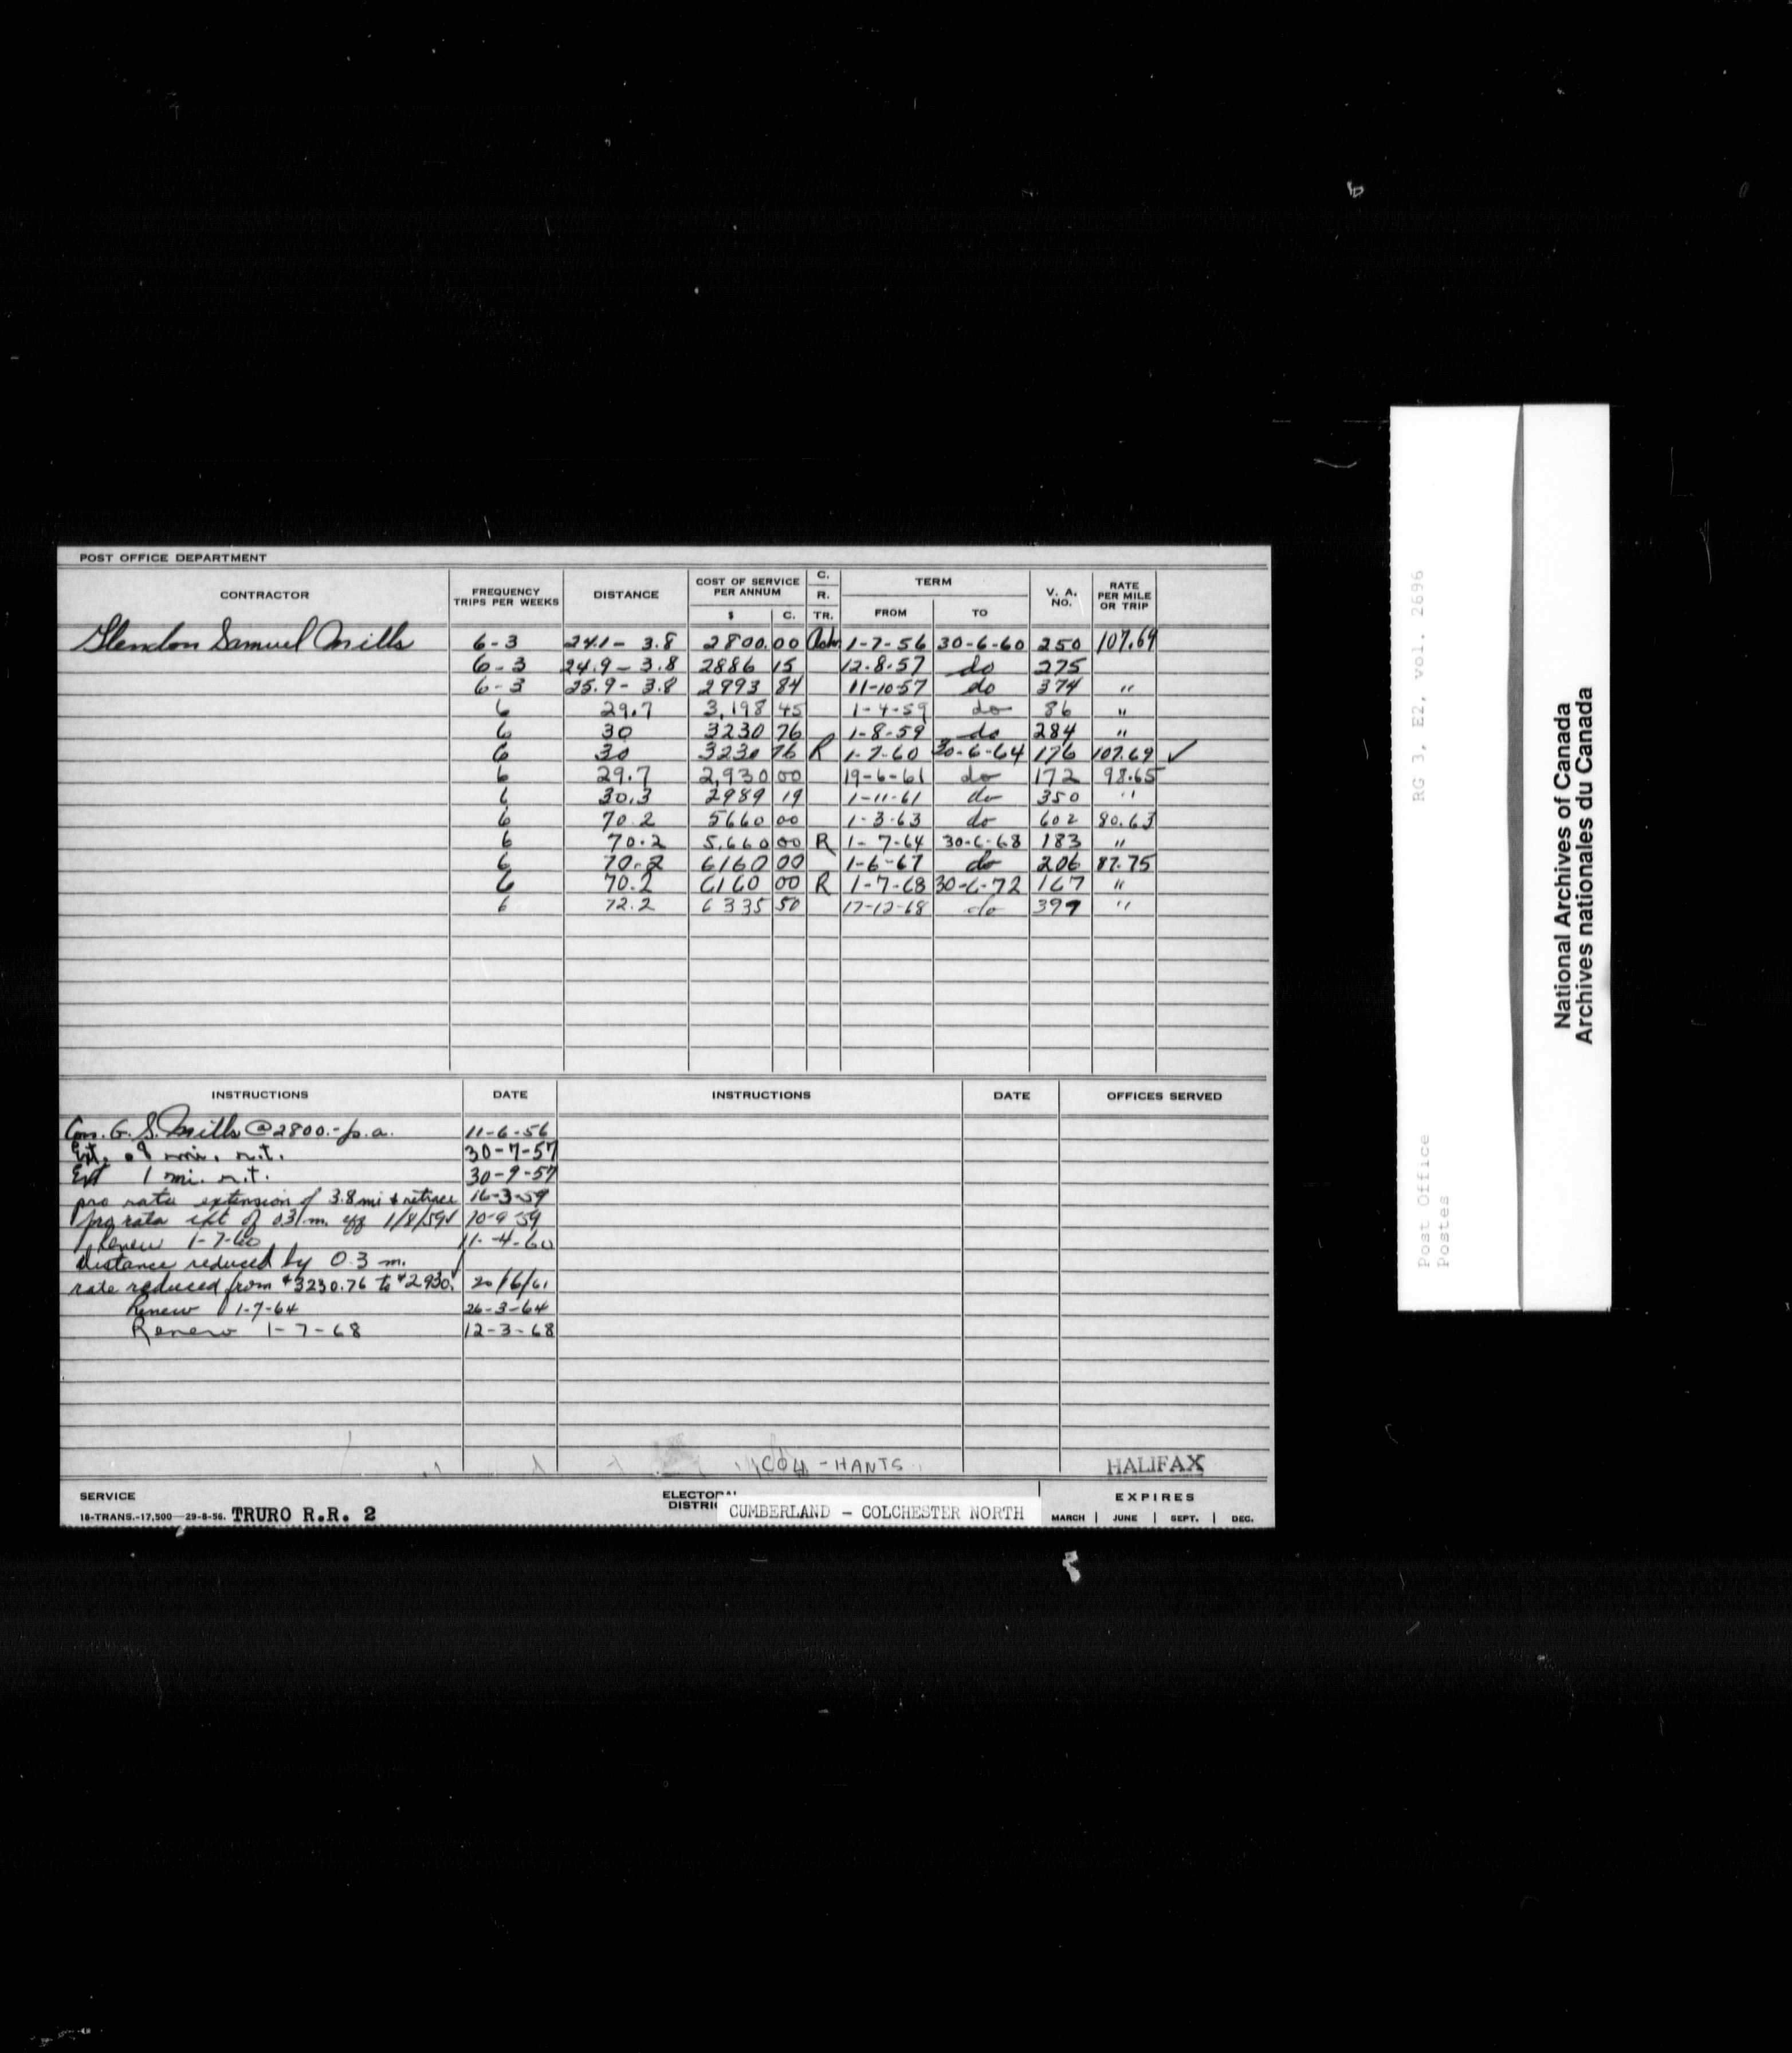 POST OFFICE DEPARTMENT
CONTRACTOR FREQUENCY TRIPS PER WEEKS DISTANCE COST OF SERVICE PER ANNUM $ C. C. R. TR. TERM FROM TO V. A. NO. RATE PER MILE OR TRIP
Glendon Samuel Mills 6-3 24.1 - 3.8 2800.00 1-7-56 30-6-60 250 107.69
6-3 24.9 - 3.8 2886 15 12-8-57 do 275
6-3 25.9 - 3.8 2993 84 11-10-57 do 374 "
6 29.7 3,198 45 1-4-59 do 86 "
6 30 3230 76 1-8-59 do 284 "
6 30 3230 76 R 1-7-60 30-6-64 176 107.69 ✓
6 29.7 2,930 00 19-6-61 do 172 98.65
6 30.3 2989 19 1-11-61 do 350 "
6 70.2 5660 00 1-3-63 do 602 80.63
6 70.2 5,660 00 R 1-7-64 30-6-68 183 "
6 70.2 6160 00 1-6-67 do 206 87.75
6 70.2 6160 00 R 1-7-68 30-6-72 167 "
6 72.2 6335 50 17-12-68 do 399 "
INSTRUCTIONS DATE INSTRUCTIONS DATE OFFICES SERVED
Con. G. S. Mills @ 2800.- p.a. 11-6-56
Ext. .8 mi. r.t. 30-7-57
Ext 1 mi. r.t. 30-9-57
pro rata extension of 3.8 mi & retrace 16-3-59
pro rata ext of 0.3 m. eff 1/8/59 10-9-59
Renew 1-7-60 11-4-60
Distance reduced by 0.3 m.
rate reduced from $3230.76 to $2930. 20/6/61
Renew 1-7-64 26-3-64
Renew 1-7-68 12-3-68
COL - HANTS
HALIFAX
SERVICE ELECTORAL DISTRICT EXPIRES
18-TRANS.-17,500—29-8-56. TRURO R.R. 2 CUMBERLAND - COLCHESTER NORTH MARCH | JUNE | SEPT. | DEC.
RG 3, E2, vol. 2696
Post Office
Postes
National Archives of Canada
Archives nationales du Canada